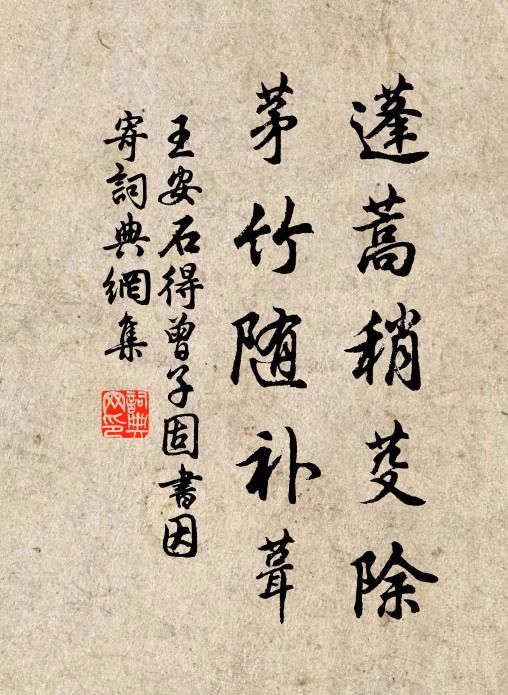 蓬蒿稍芟除
茅竹随补葺
王安石得曾子固書因
寄詞典網集
詞典網印